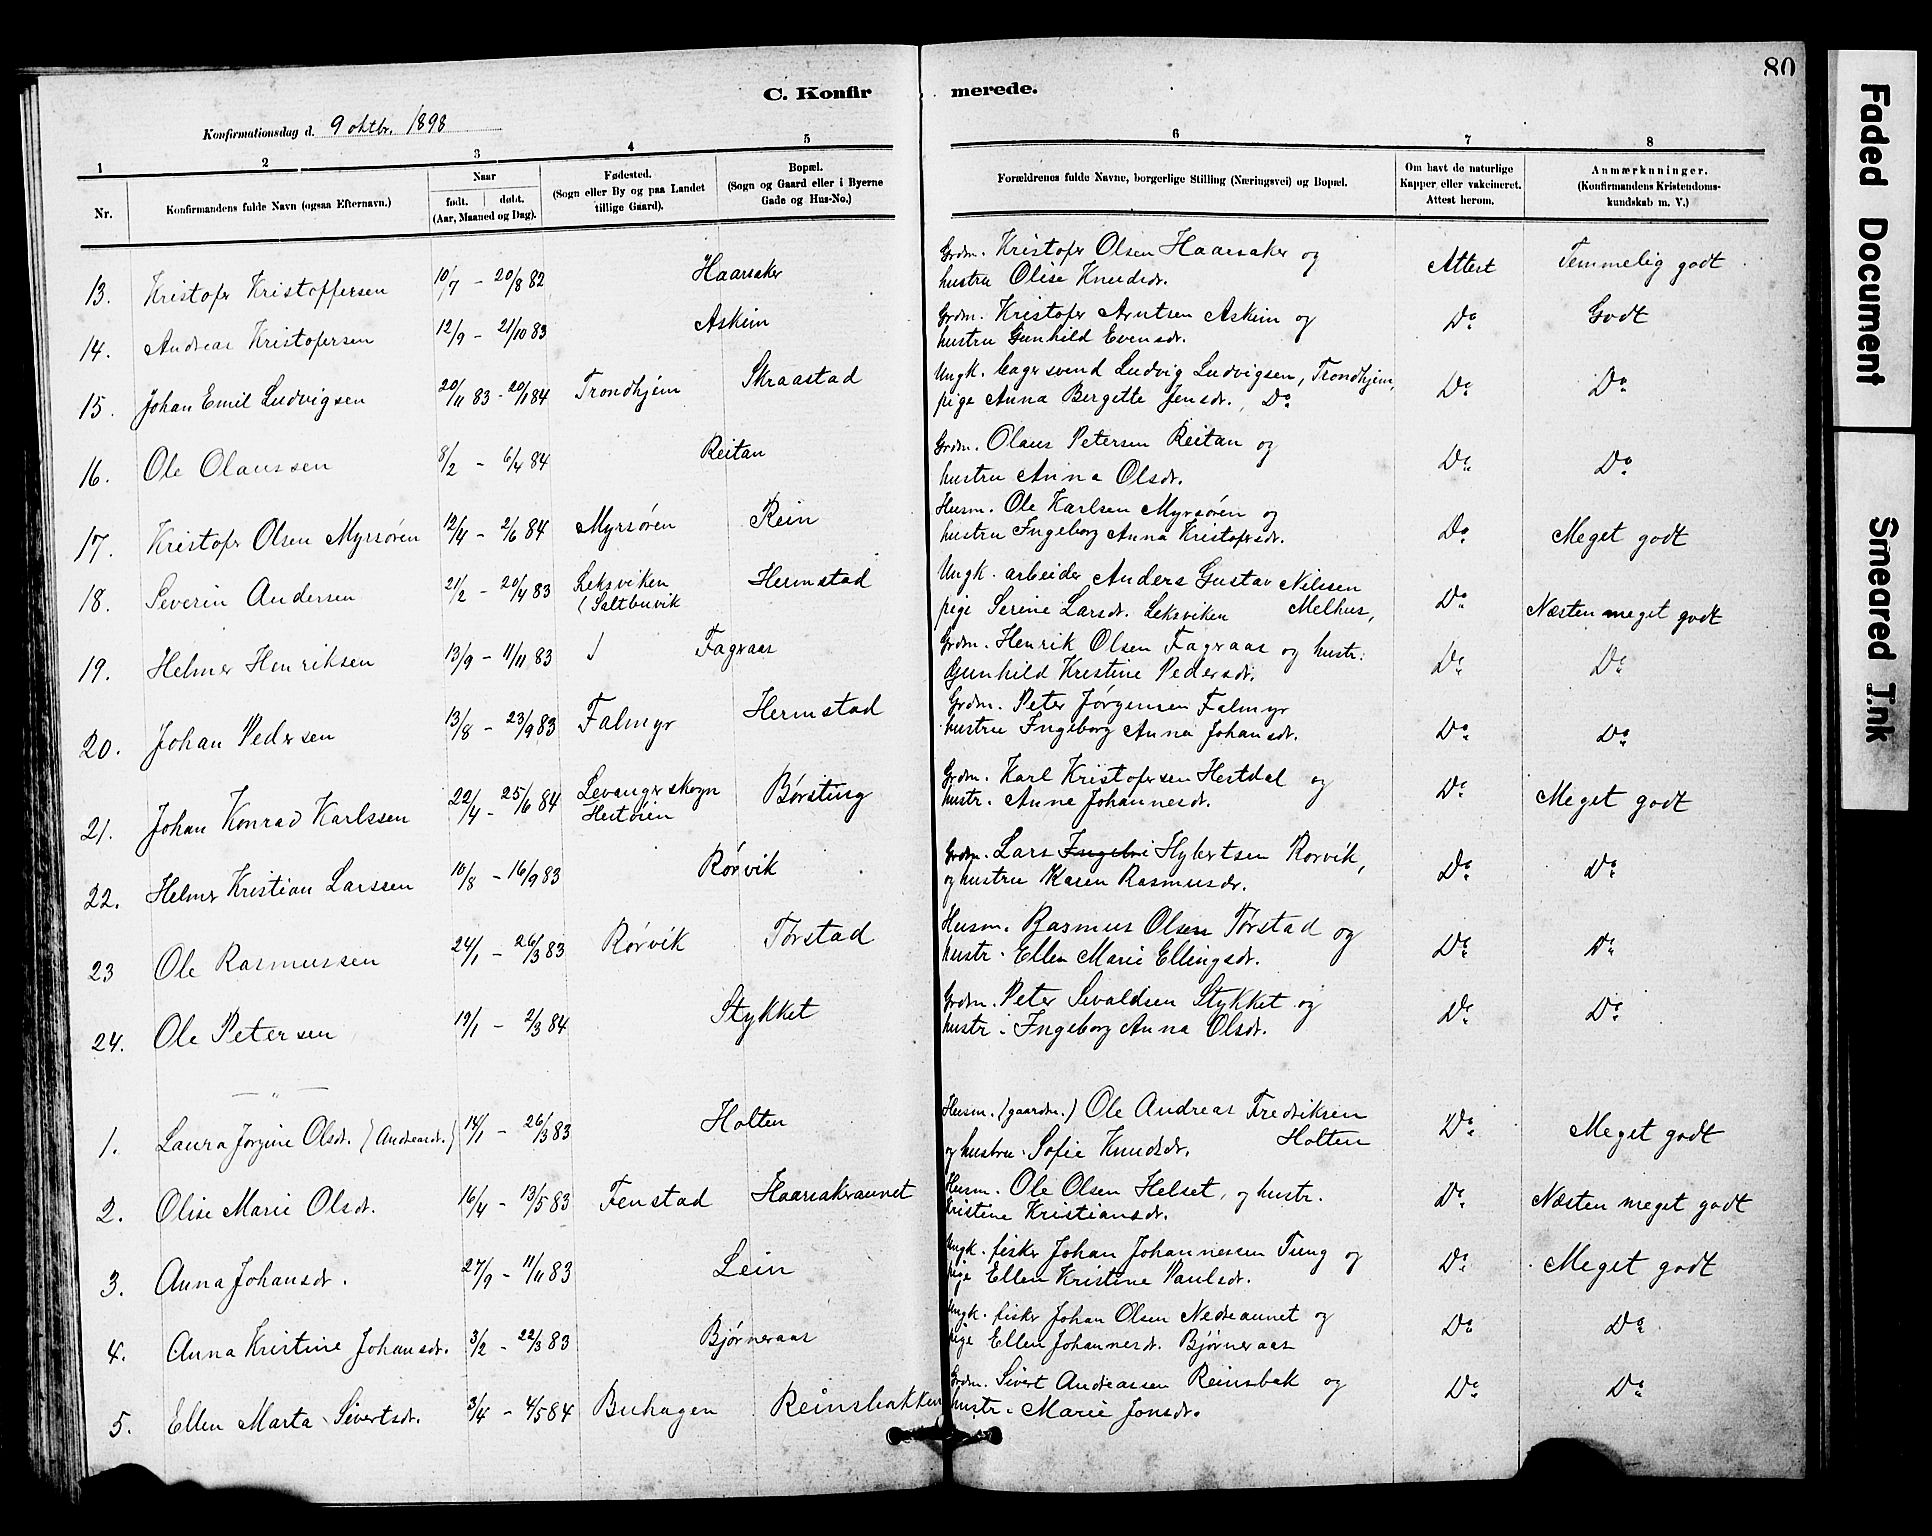 80
C. Konfirmerede.
Konfirmationsdag d. 9 oktbr. 1898
1 2 3 4 5 6 7 8
Nr.
Konfirmandens fulde Navn (ogsaa Efternavn.)
Naar
født. døbt.
(Aar, Maaned og Dag).
Fødested.
(Sogn eller By og paa Landet
tillige Gaard).
Bopæl.
(Sogn og Gaard eller i Byerne
Gade og Hus-No.)
Forældrenes fulde Navne, borgerlige Stilling (Næringsvei) og Bopæl.
Om havt de naturlige
Kapper eller vakcineret.
Attest herom.
Anmærkninger.
(Konfirmandens Kristendoms-
kundskab m. V.)
13. Kristofer Kristoffersen 10/7 - 20/8 82 Haarsaker Grdm. Kristofer Olsen Haarsaker og
hustru Olise Knudsdr. Attest Temmelig godt
14. Andreas Kristofersen 12/9 - 21/10 83 Askein Grdm. Kristofer Arntsen Askein og
hustru Gunhild Evensdr. Do Godt
15. Johan Emil Ludvigsen 20/11 83 - 20/1 84 Trondhjem Skraastad Ungk. bagersvend Ludvig Ludvigsen, Trondhjem,
pige Anna Bergette Jensdr., Do Do Do
16. Ole Olaussen 8/2 - 6/4 84 Reitan Grdm. Olaus Petersen Reitan og
hustru Anna Olsdr. Do Do
17. Kristofer Olsen Myrsören 12/4 - 2/6 84 Myrsören Rein Husm. Ole Karlsen Myrsören og
hustru Ingeborg Anna Kristofersdr. Do Meget godt
18. Severin Andersen 21/2 - 20/4 83 Leksviken
(Saltbuvik Hermstad Ungk. arbeider Anders Gustav Nilssen
pige Serine Larsdr. Leksviken Melhus, Do Næsten meget godt
19. Helmer Henriksen 13/9 - 11/11 83 Fagraas Grdm. Henrik Olsen Fagraas og hustr:
Gunhild Kristine Pedersdr. Do Do
20. Johan Pedersen 13/8 - 23/9 83 Falmyr Hermstad Grdm. Peter Jørgensen Falmyr
hustru Ingeborg Anna Johansdr. Do Do
21. Johan Konrad Karlssen 22/4 - 25/6 84 Levanger skogn
Hestöien Børsting Grdm. Karl Kristofersen Hestdal og
hustr. Anne Johannesdr. Do Meget godt
22. Helmer Kristian Larssen 10/8 - 16/9 83 Rörvik Grdm. Lars Hybertsen Rorvik,
og hustru Karen Rasmusdr. Do Do
23 Ole Rasmussen 24/1 - 26/3 83 Rörvik Tørstad Husm. Rasmus Olsen Tørstad og
hustr. Ellen Marie Ellingsdr. Do Do
24. Ole Petersen 19/1 - 2/3 84 Stykket Grdm. Peter Sivaldsen Stykket og
hustr. Ingeborg Anna Olsdr. Do Do
1. Laura Jorgine Olsdr. (Andreasdr.) 14/1 - 26/3 83 Holten Husm. (gaardm.) Ole Andreas Fredriksen
og hustru. Sofie Knudsdr. Holten Do Meget godt
2. Olise Marie Olsdr. 16/4 - 13/5 83 Fenstad Haarsakeraunet Husm. Ole Olsen Helset, og hustr.
Kristine Kristiansdr. Do Næsten meget godt
3. Anna Johansdr. 27/9 - 11/11 83 Lein Ungk. fisker Johan Johannessen Tung og
pige Ellen Kristine Paulsdr. Do Meget godt
4. Anna Kristine Johansdr. 3/2 - 22/3 83 Bjørneraas Ungk. fisker Johan Olsen Nedreaunet og
pige Ellen Johannesdr. Bjørneraas Do Do
5. Ellen Marta Sivertsdr. 3/4 - 4/5 84 Buhagen Reinsbakken Grdm. Sivert Andreassen Reinsbak og
hustr. Marie Jonsdr. Do Do
Faded Document
Smeared Ink